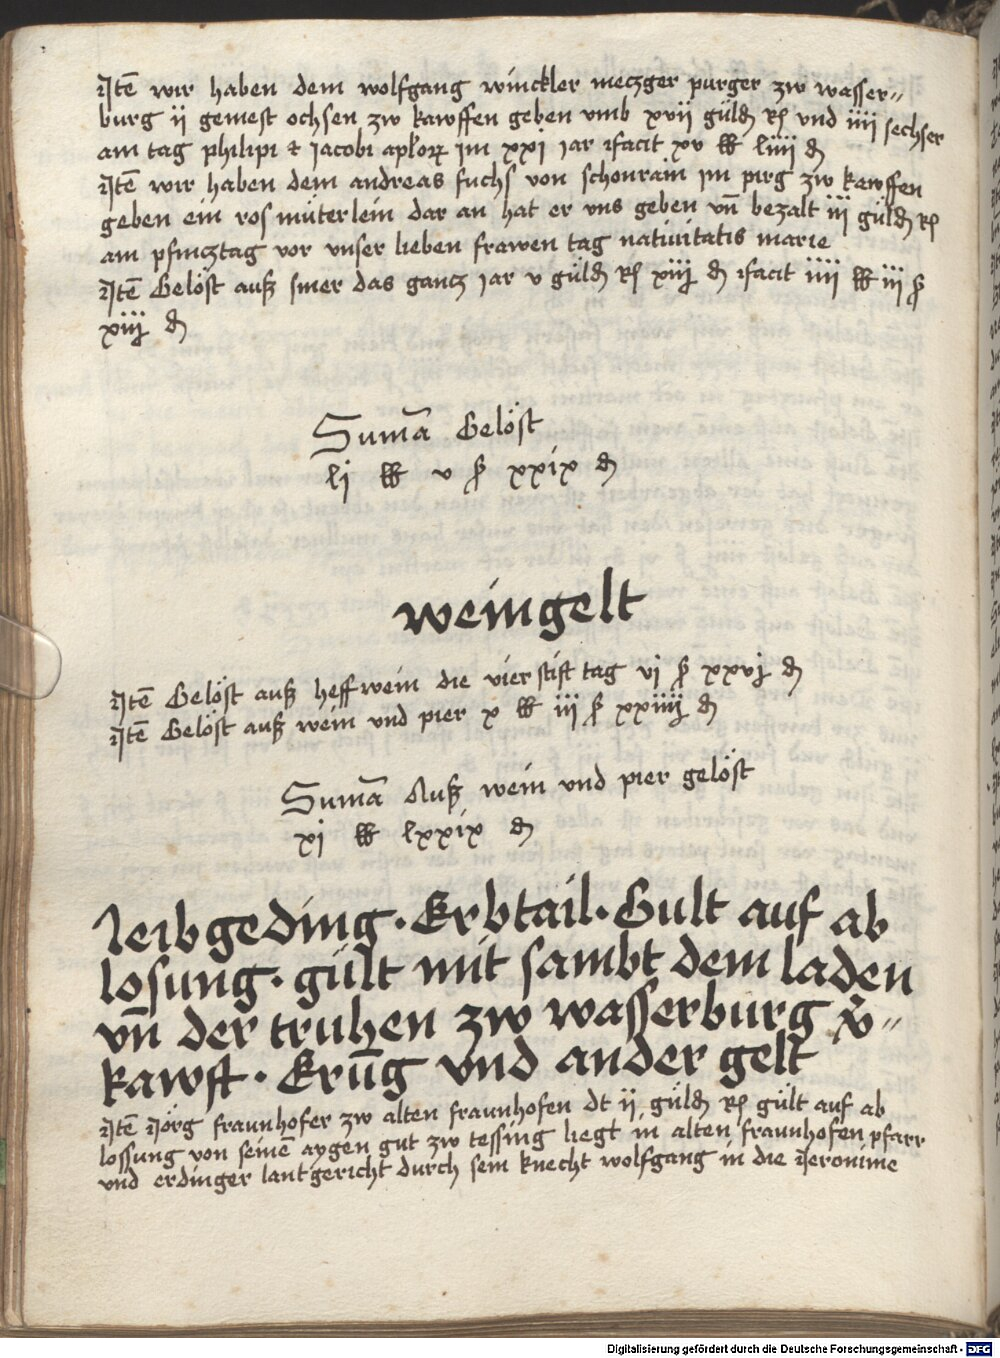 Jtē wir haben dem wolfgang winckler meczger purger zw wasser〃
burg ij gemest ochsen zw kawffen geben vmb xvij gůldn̄ Rh vnd iiij sechser
am tag philipi et Jacobi apl̄oꝝ im xxi Jar ifacit xv ℔ liiij ₰
Jtē wir haben dem andreas fuchs von schonrain im pirg zw kawffen
geben ein ros müterlein dar an hat er vns geben vn̄ bezalt iij gůldn̄ Rh
am pfincztag vor vnser lieben frawen tag natiuitatis marie
Jtē Gelöst auß smer das gancz Jar v gůldn̄ Rh xiij ₰ ifacit iiij ℔ iij ß
xiij ₰
Sum̄a Gelöst
lj ℔ v ß xxix ₰
weingelt
Jtē Gelöst auß heffwein die vier stift tag vj ß xxvj ₰
Jtē Gelöst auß wein vnd pier x ℔ iij ß xxiiij ₰
Sum̄a Auß wein vnd pier gelöst
xj ℔ lxxix ₰
Leibgeding · Erbtail · Gult auf ab
losung · gült mit sambt dem laden
vn̄ der truhen zw wasserburg v̄〃
kawft · Erūg vnd ander gelt
Jtē Jörg fraunhofer zw alten fraunhofen dt ij gůldn̄ Rh gült auf ab
lossung von seinē aygen gut zw tessing liegt in alten fraunhofen pfarr
vnd erdinger lantgericht durch sein knecht wolfgang in die Jeronime
Digitalisierung gefördert durch die Deutsche Forschungsgemeinschaft - DFG